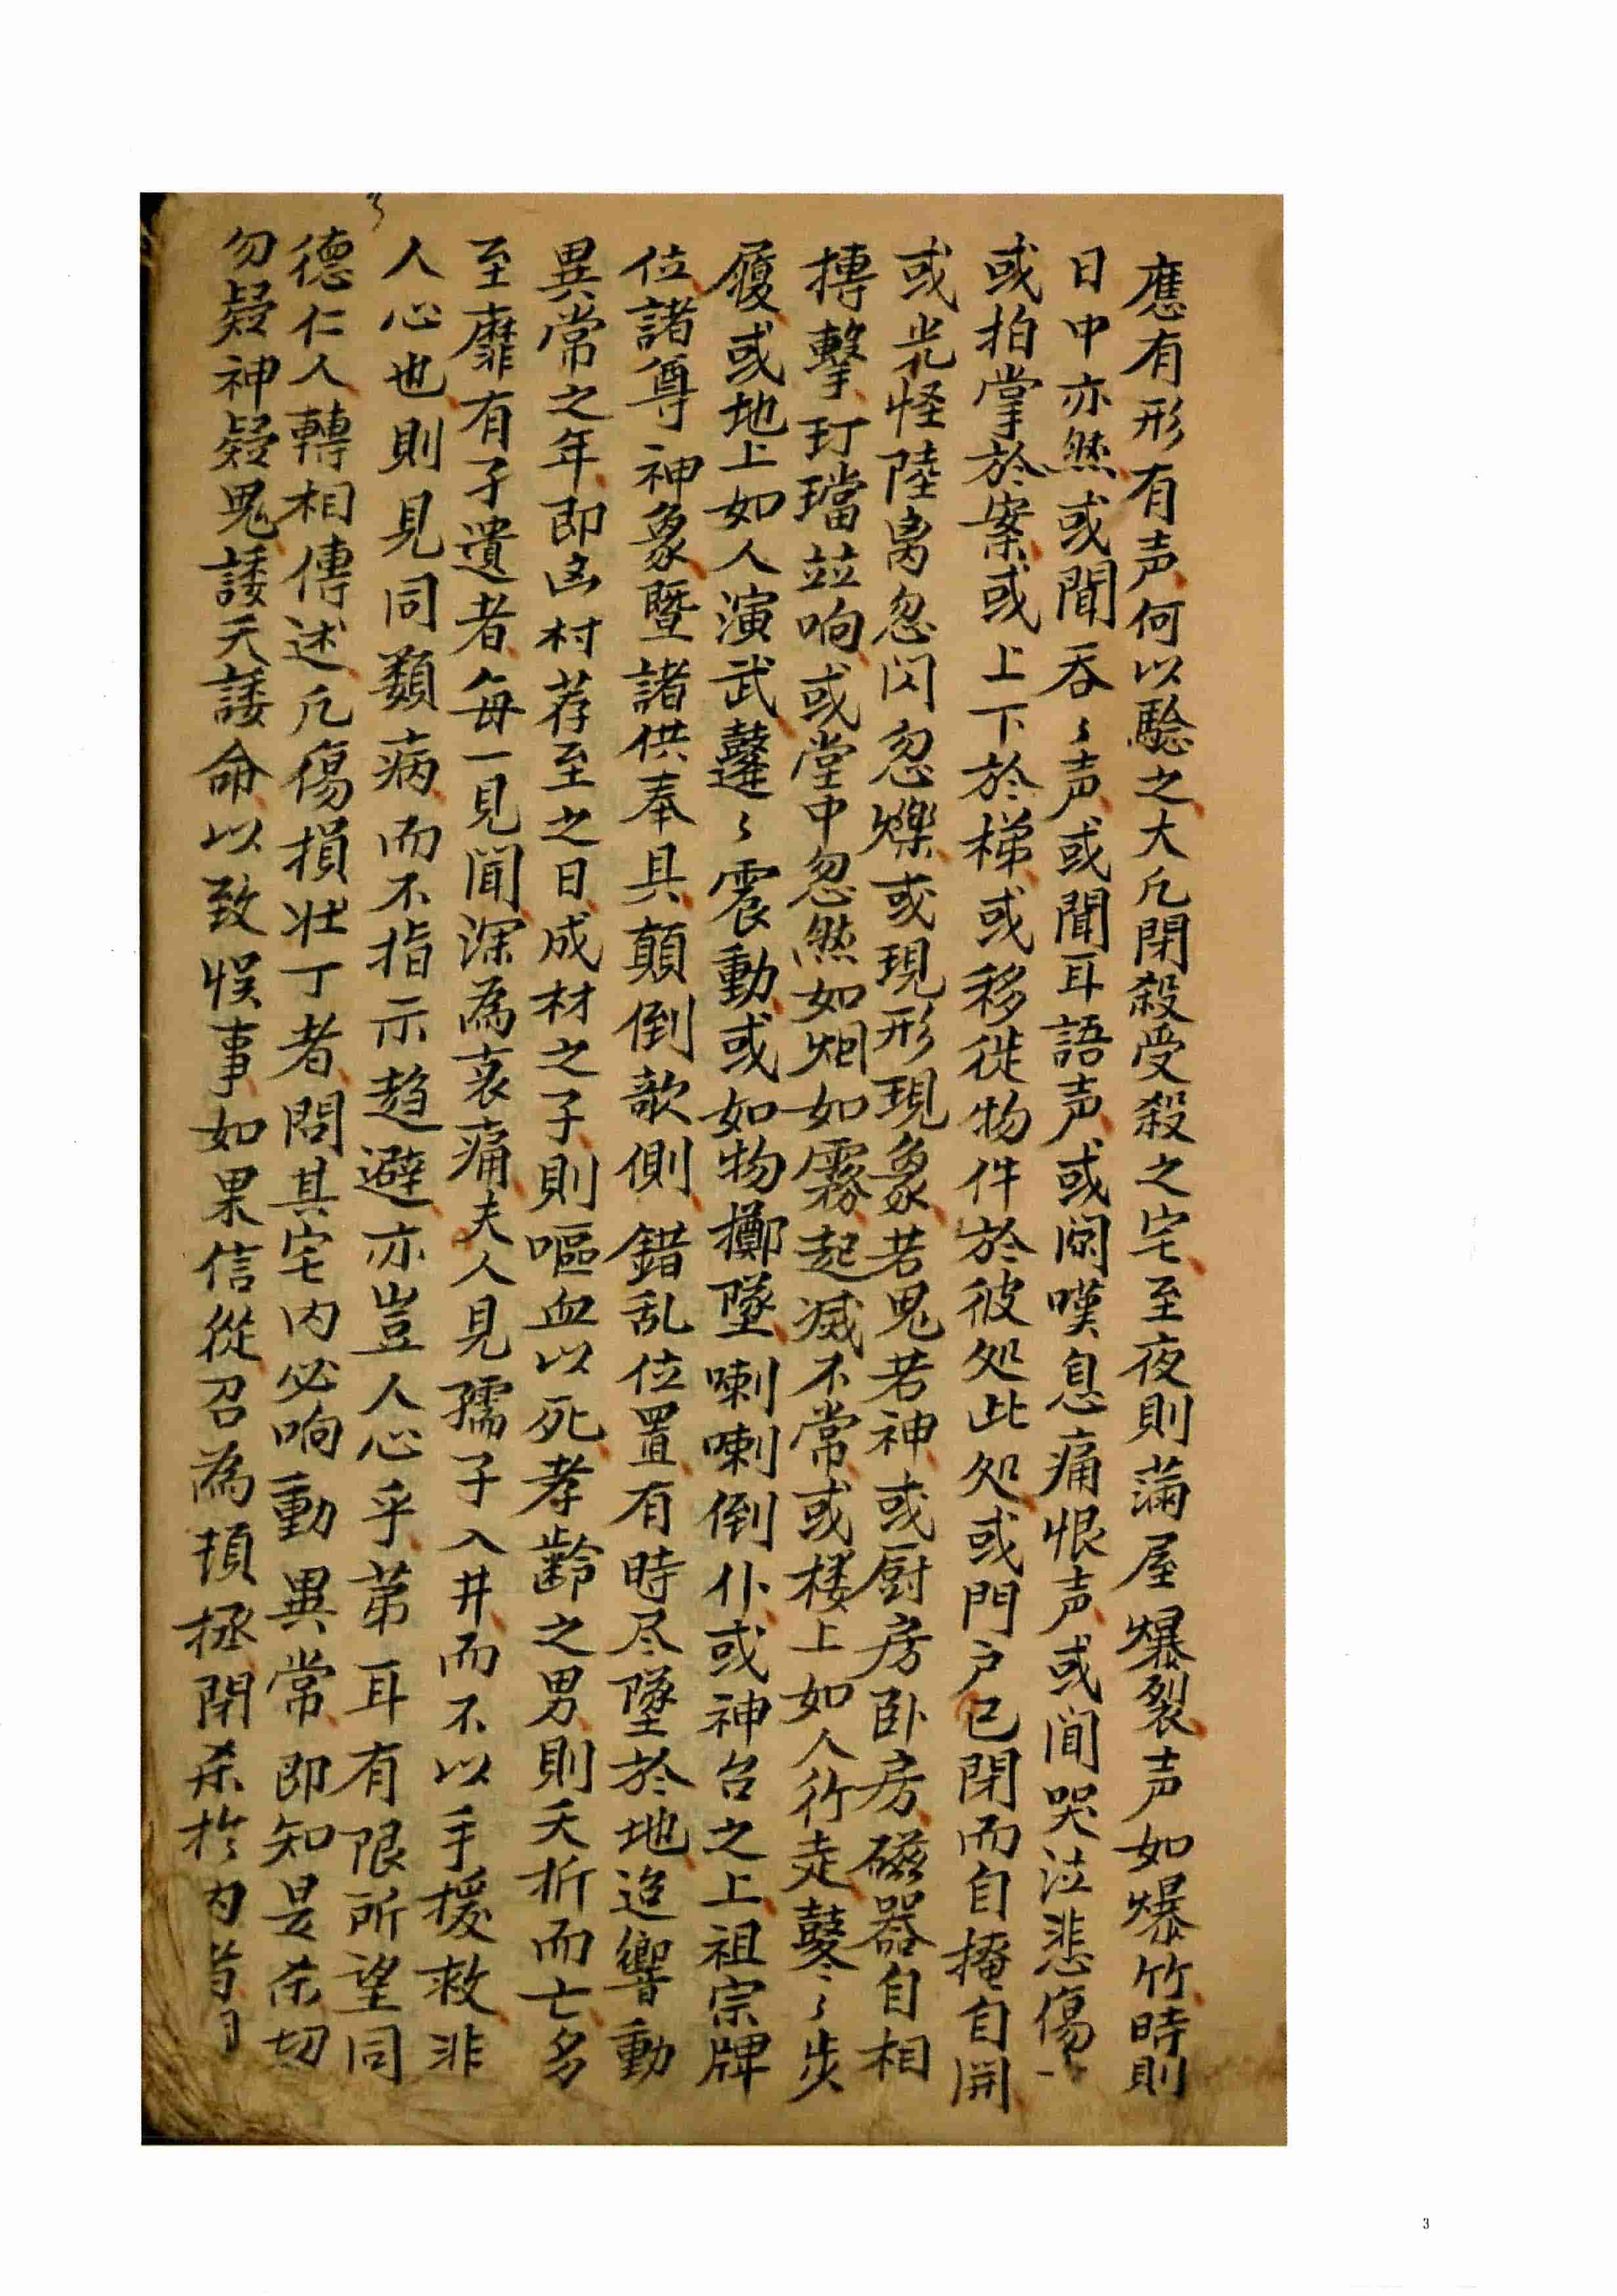 應有形有声何以驗之大凢閉殺受殺之宅至夜則滿屋爆裂声如爆竹時則
日中亦然或聞吞〻声或聞耳語声或闻嘆息痛恨声或闻哭泣悲傷
或拍掌於案或上下於梯或移徙物件於彼处此处或門户已閉而自掩自開
或光怪陸离忽闪忽爍或現形現象若鬼若神或厨房卧房磁器自相
摶擊玎璫並响或堂中忽然如烟如霧起滅不常或楼上如人行走鼕〻步
履或地上如人演武薘〻震動或如物擲墜喇喇倒仆或神台之上祖宗牌
位諸尊神象暨諸供奉具顛倒欹側錯乱位置有時尽墜於地迨響動
異常之年即凶村荐至之日成材之子則嘔血以死孝齡之男則夭折而亡多
至靡有孑遺者每一見聞深為哀痛夫人見孺子入井而不以手援救非
人心也則見同類病而不指示趋避亦豈人心乎苐耳有限所望同
德仁人轉相傳述凢傷損壮丁者問其宅内必响動異常即知是杀切
勿疑神疑鬼諉天諉命以致悮事如果信從召為頂拯閉杀於内
3